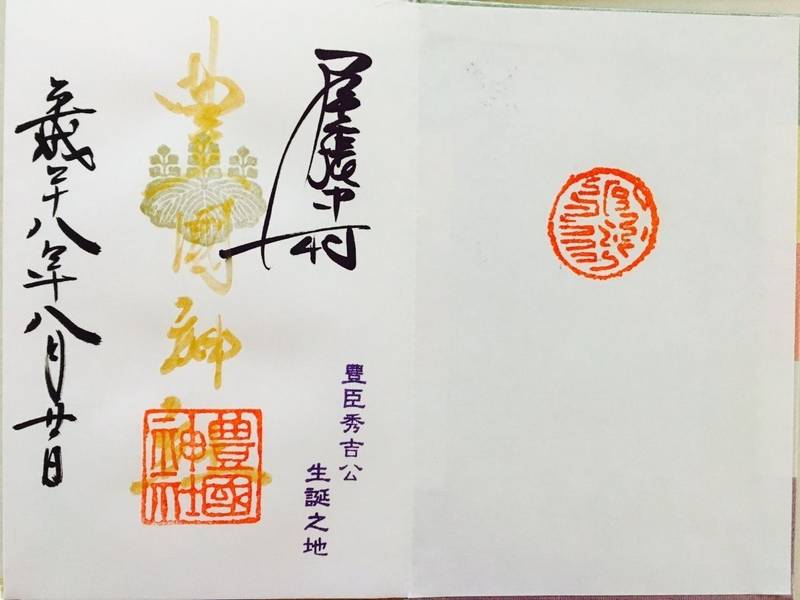 尾張中村
豊國神社
豊國神社
豐臣秀吉公
生誕之地
平成二十八年八月廿日